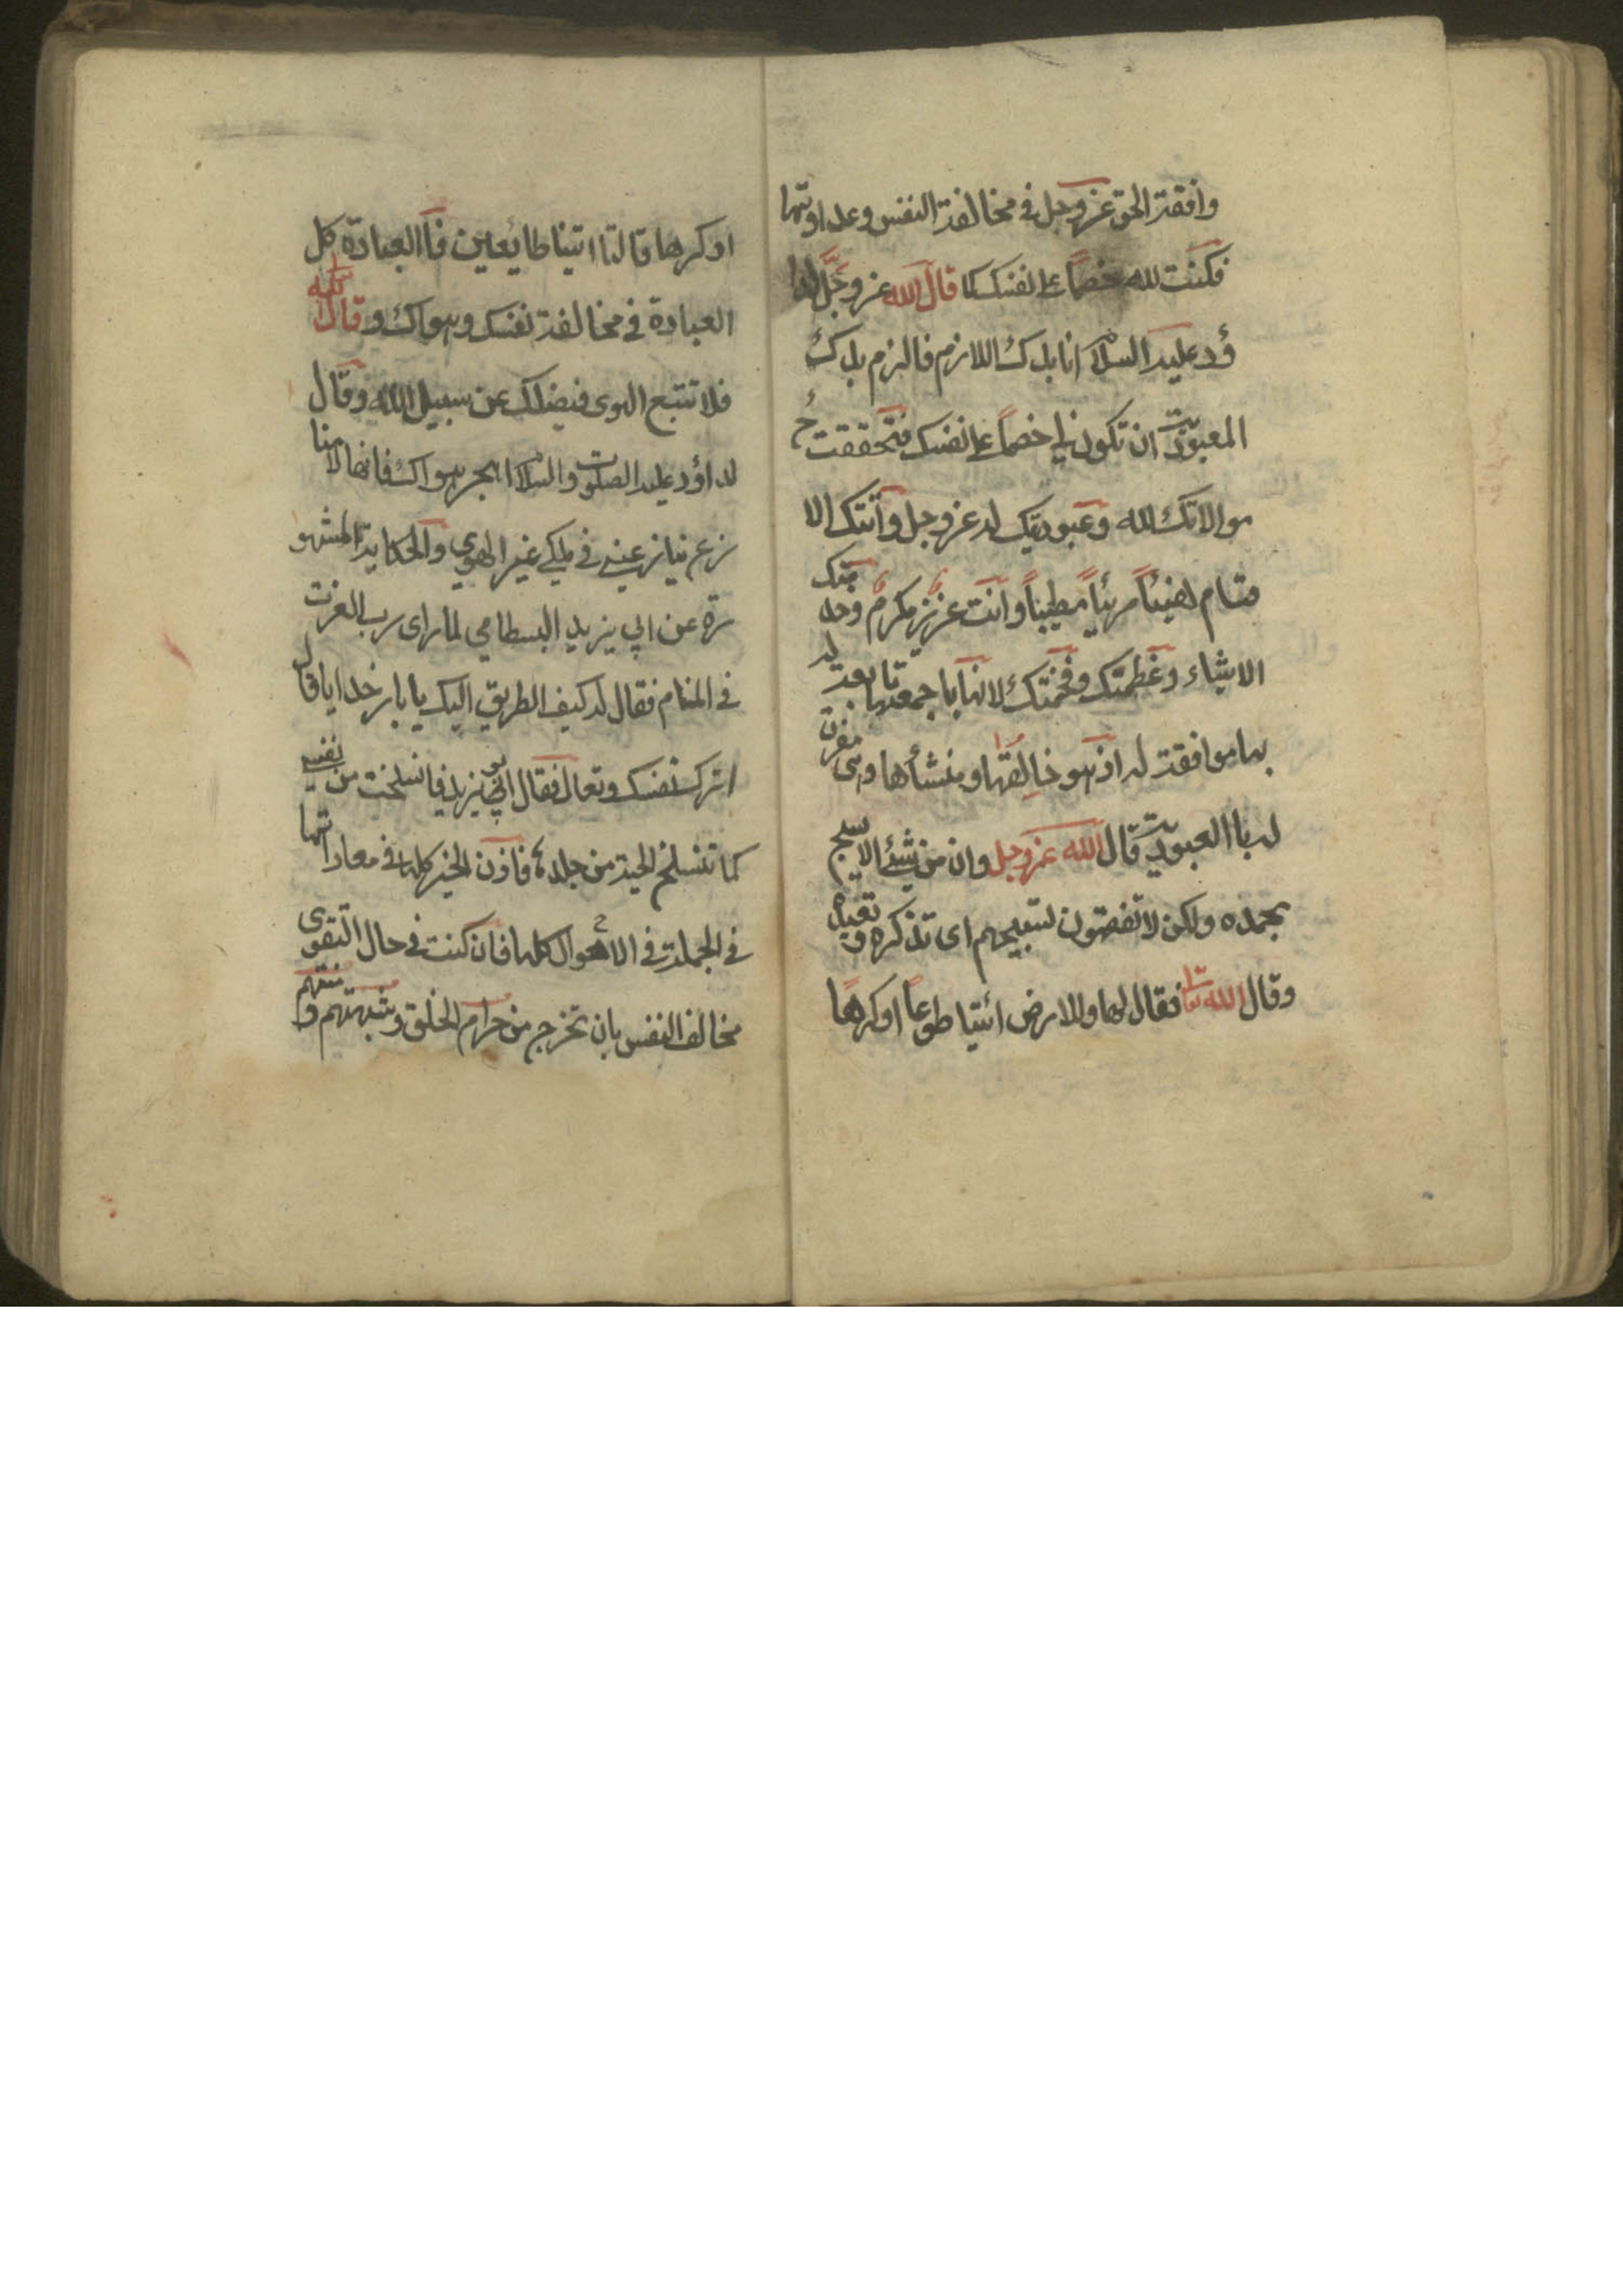 وافقة الحق عز وجل فى مخالفة النفس وعداوتها
فكنت لله خصماً على نفسك كما قال الله عز وجل لدا
ؤد عليه السلام انا بدك اللازم فالزم بدك
العبودية ان تكون لى خصماً على نفسك فتحققت ح
موالاتك لله وعبوديتك له عز وجل وأتتك الا
قسام هنيئاً مريئاً مطيباً وانت عزيز مكرم وخدمتك
الاشياء وعظمتك وفخمتك لانها باجمعها تابعة له
بها موافقة له اذ هو خالقها ومنشأها وهى مقرة
له بالعبودية قال الله عز وجل وان من شئ الا يسبح
بحمده ولكن لا تفقهون تسبيحهم اى تذكره وتعبده
وقال الله تعا فقال لها وللارض ائتيا طوعاً او كرهاً
او كرها قالتا اتينا طايعين فا العبادة كل
العبادة فى مخالفة نفسك وهواك وقال الله
فلا تتبع الهوى فيضلك عن سبيل الله وقال
لداؤد عليه الصلوة والسلام اهجر هواك فانه لا منا
زع ينازعنى فى ملكى غير الهوى والحكاية المشهو
رة عن ابى يزيد البسطامى لما راى رب العزت
فى المنام فقال له كيف الطريق اليك يا بار خدايا قال
اترك نفسك وتعال فقال ابو يزيد فانسلخت من نفسى
كما تنسلخ الحية من جلده فاذن الخير كله فى معاداتها
فى الجملة فى الاحوال كلها فان كنت فى حال التقوى
مخالف النفس بان تخرج من حرام الخلق وشبهتهم و منتهم